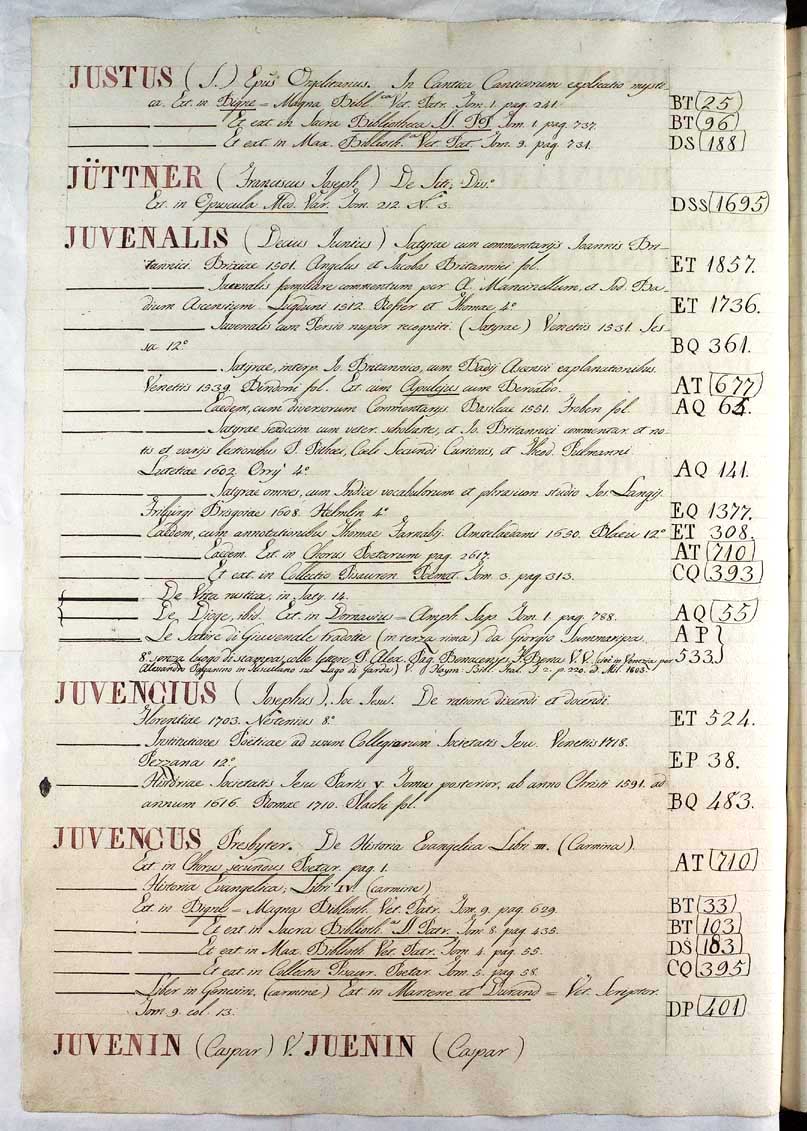 JUSTUS (S.) Epus Orgelitanus. In Cantica Canticorum explicatio mysti-
ca. Ext. in Bigne = Magna Bibl.ca Vet. Patr. Tom. 1. pag. 241. BT (25)
Et ext. in Sacra Bibliotheca SS PP Tom. 1. pag. 737. BT (96)
Et ext. in Max. Biblioth.a Vet. Pat. Tom. 9. pag. 731. DS (188)
JÜTTNER (Franciscus Joseph.) De Siti. Diss.
Ext. in Opuscula Med. Var. Tom. 212. N.° 3. DSS (1695)
JUVENALIS (Decius Junius) Satyrae cum commentarijs Joannis Bri-
tannici. Brixiae 1501. Angelus et Jacobus Britannici fol. ET 1857.
Juvenalis familiare commentum per A. Mancinellum, et Jod. Ba-
dium Ascensium. Lugduni 1512. et Thomae, 4.° ET 1736.
Juvenalis cum Persio nuper recogniti (Satyrae) Venetiis 1531. Ses-
sa 12.° BQ 361.
Satyrae, interp. Jo. Britannico, cum Badij Ascensii explanationibus.
Venetiis 1539. Bindoni fol. Ext. cum Apulejus cum Beroaldo. AT (677)
Eaedem, cum diversorum Commentarijs. Basileae 1551. Froben fol. AQ 65.
Satyrae sexdecim cum veter. scholiaste, et Jo. Britannici commentar. et no-
tis et varijs lectionibus P. Pithaei, Coelii Secundi Curionis, et Theod. Pulmanni
Lutetiae 1602. Orry 4.° AQ 141.
Satyrae omnes, cum Indice vocabulorum et phrasium studio Jos. Langij.
Friburgi Brisgoiae 1608. Helmlin 4.° EQ 1377.
Eaedem, cum annotationibus Thomae Farnabij. Amstelaedami 1650. Blaeu 12.° ET 308.
Eaedem. Ext. in Chorus Poetarum pag. 2617. AT (710)
Et ext. in Collectio Pisauren. Poemat. Tom. 3. pag. 313. CQ (393)
De Vita rustica, in Saty. 14.
De Dioge, ibid. Ext. in Dornavius = Amph. Sap. Tom. 1. pag. 788. AQ (55)
Le Satire di Giuvenale tradotte (in terza rima) da Giorgio Summaripa. AP}
8.° senza luogo di stampa, colle lettere P. Alex. Pag. Benacenses F. Bena V. V. (cioè in Venezia per 533}
Alessandro Paganino in Toscullano sul Lago di Garda) V. Haym Bibl. Ital. T. 2. p. 220. ed. Mil. 1803.
JUVENCIUS (Josephus) Soc. Jesu. De ratione discendi et docendi.
Florentiae 1703. Nestenius 8.° ET 524.
Institutiones Poëticae ad usum Collegiorum Societatis Jesu. Venetiis 1718.
Pezzana 12.° EP 38.
Historiae Societatis Jesu Partis V. Tomus posterior, ab anno Christi 1591. ad
annum 1616. Romae 1710. Plachi fol. BQ 483.
JUVENCUS Presbyter. De Historia Evangelica Libri III. (Carmina).
Ext. in Chorus secundus Poetar. pag. 1. AT (710)
Historia Evangelica; Libri IV. (carmine)
Ext. in Bigne = Magna Biblioth. Vet. Patr. Tom. 9. pag. 629. BT (33)
Et ext. in Sacra Biblioth.a SS. Patr. Tom 8. pag. 435. BT (103)
Et ext. in Max. Biblioth Vet. Patr. Tom 4. pag. 55. DS (183)
Et ext. in Collectio Pisaur. Poetar. Tom. 5. pag. 58. CQ (395)
Liber in Genesim. (carmine) Ext. in Martene et Durand = Vet. Scriptor.
Tom. 9. col. 13. DP (401)
JUVENIN (Caspar) V. JUENIN (Caspar)